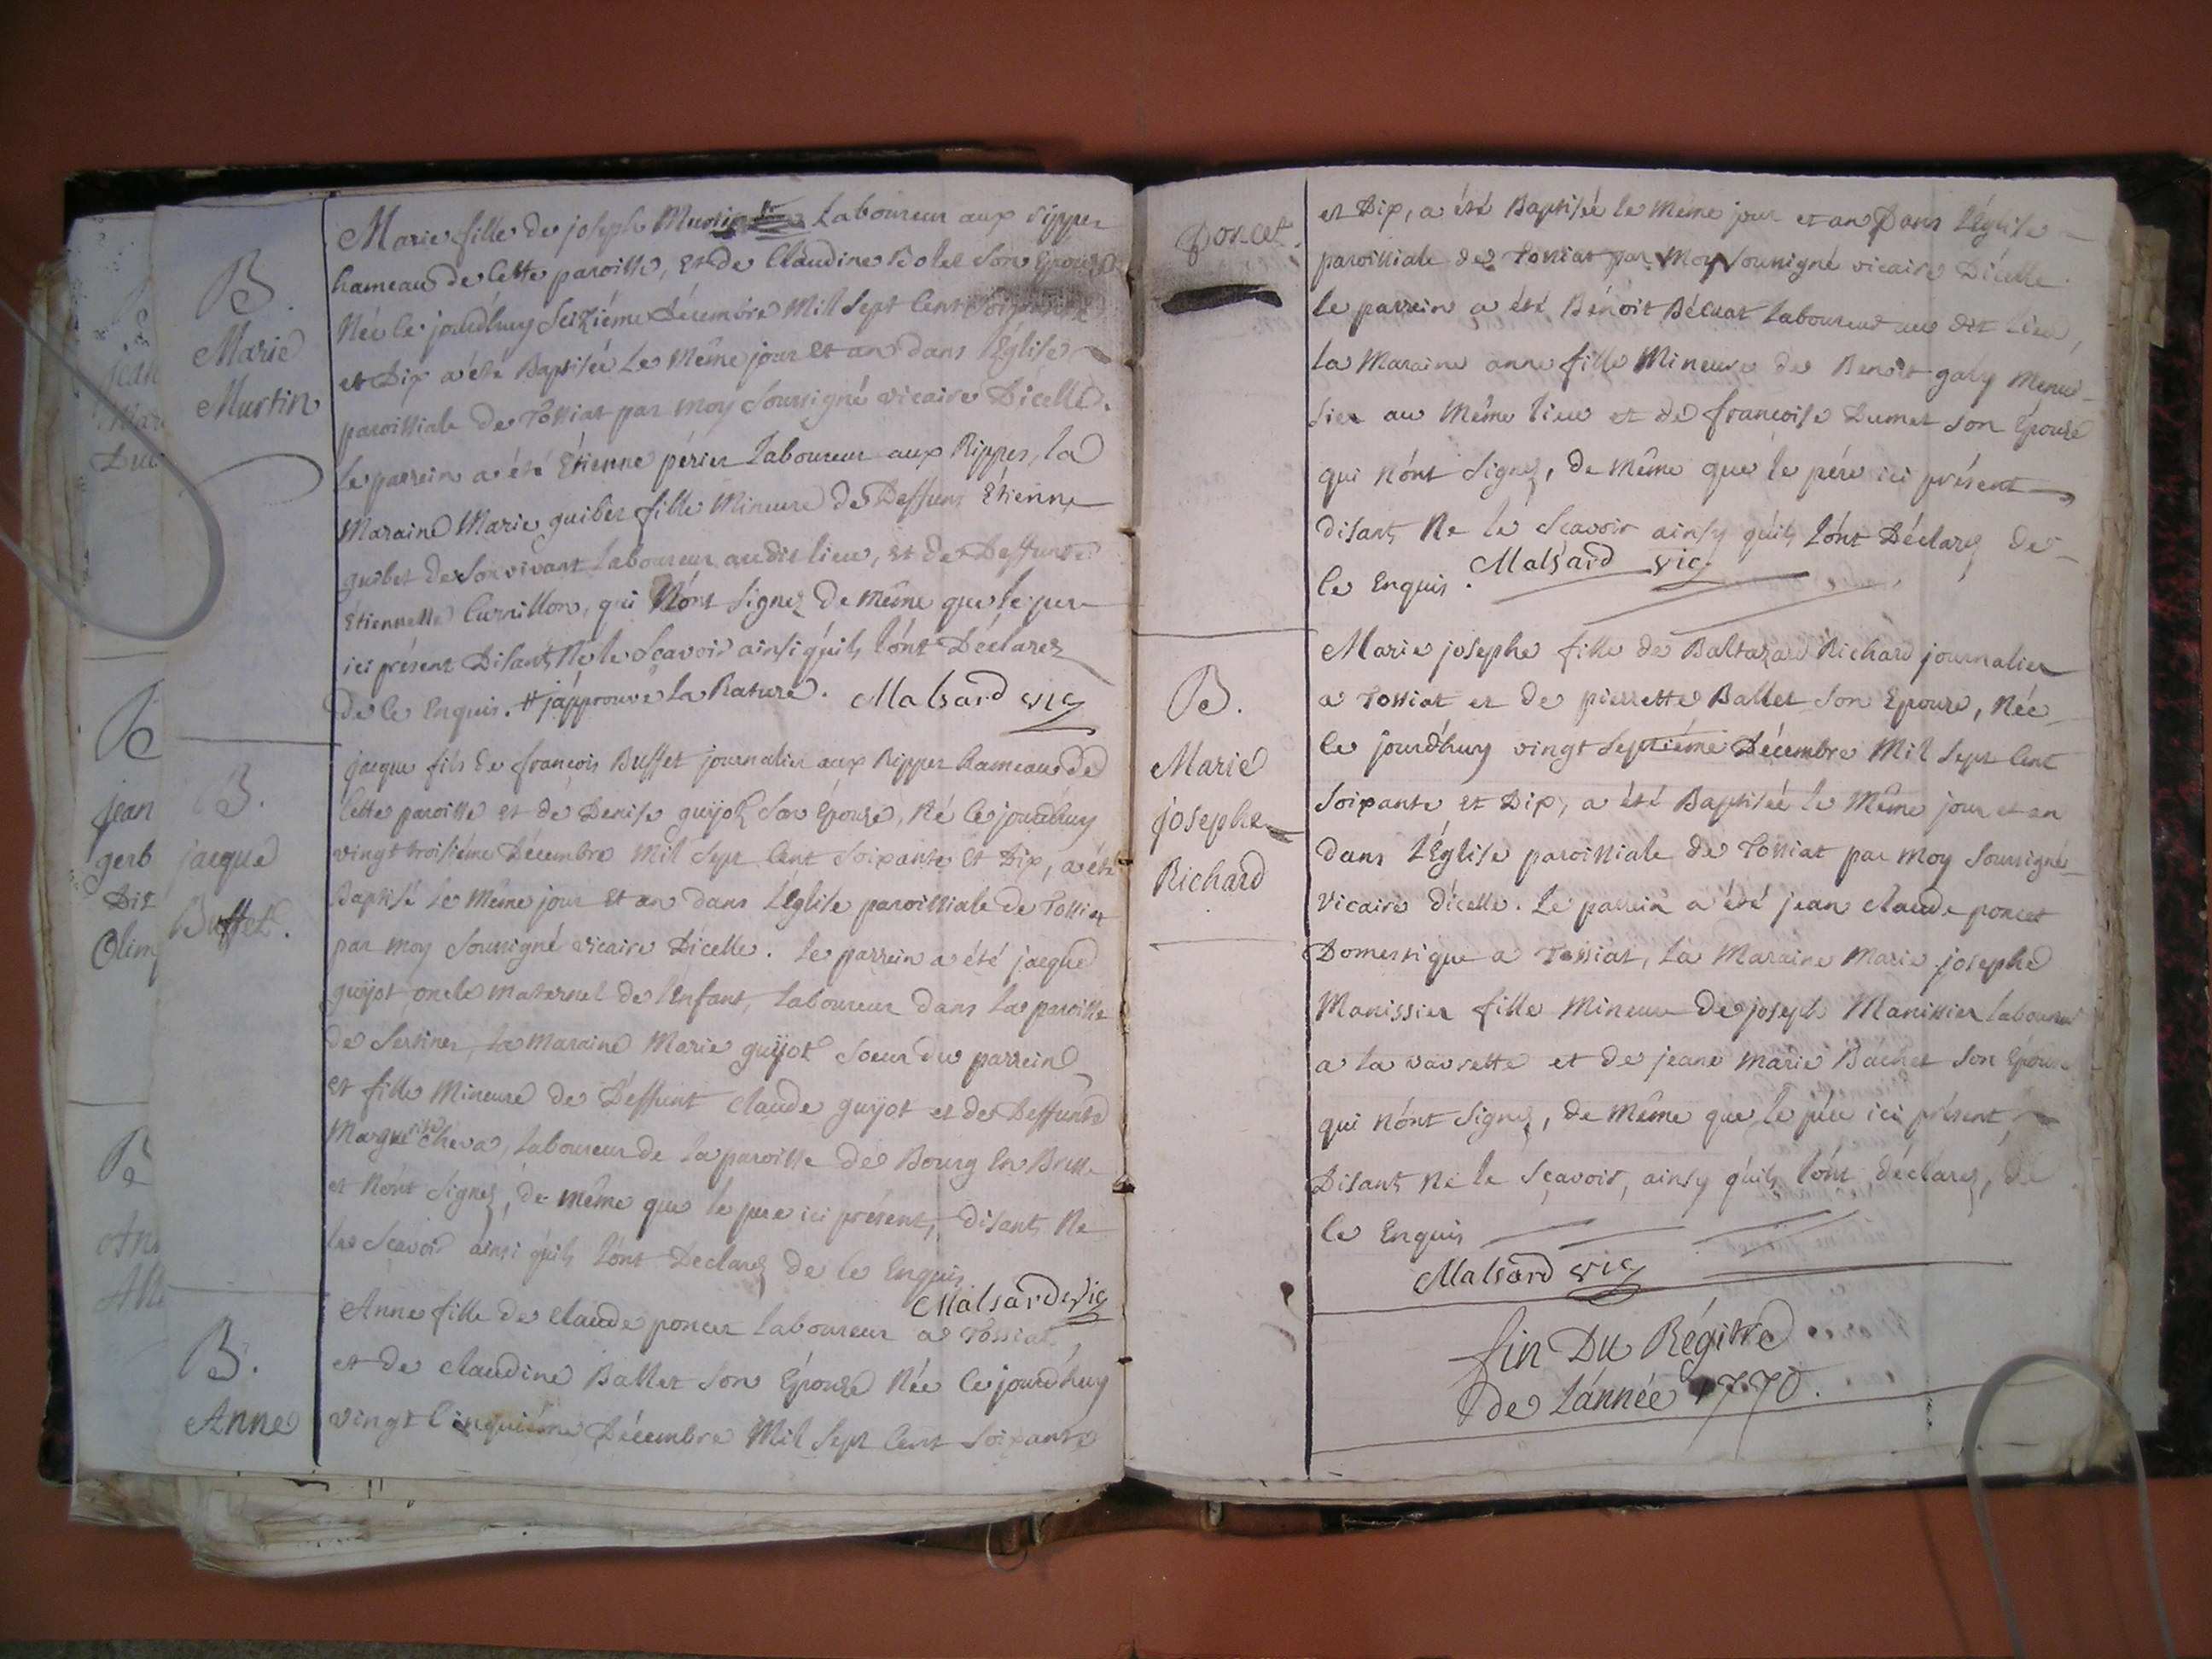 B.
Marie
Martin
Marie fille de joseph Martin Laboureur aux rippes
hameau de Cette paroisse, Et de Claudine Bolet Son Epouse
Née le jourd'huy Seizième Décembre Mil Sept Cent Soixante
et Dix a été Baptisée Le Même jour Et an dans l'Église
paroissiale de Tossiat par moy Soussigné vicaire D'icelle.
Le parrein a été Étienne périer Laboureur aux Rippes, la
Maraine Marie guibet fille Mineure de Deffunt Étienne
guibet de Son vivant Laboureur audit lieu, et de Deffunte
Etiennette Curnillon, qui N'ónt Signez de même que le pere
ici présent Disants Ne le Scavoir ainsi qu'ils l'ónt Déclarez
de le Enquis. # j'approuve la Rature. Malsard vic
B.
jacque
Buffet.
jacque fils de francois Buffet journalier aux Rippes hameau de
Cette paroisse et de Denise guijot Son Épouse, Né le jourd'huy
vingt troisiéme Décembre Mil Sept Cent Soixante Et Dix, a été
Baptisé Le Même jour Et an dans L'église paroissiale de Tossiat
par moy Soussigné vicaire D'icelle. Le parrein a été jacque
guijot oncle maternel de l'Enfant, Laboureur dans la paroisse
de Sertines, la Maraine Marie guijot Soeur du parrein
et fille Mineure de Deffunt Claude guijot et de Deffunte
Marguerite Cheva, Laboureur de la paroisse de Bourg En Bresse
et N'ónt Signez, de même que le pere ici présent, disants Ne
le Scavoir ainsi qu'ils l'ónt Declarez de le Enquis
Malsard vic
B.
Anne
Anne fille de Claude poncet Laboureur a Tossiat
et de Claudine Ballet Son Épouse Née le jourd'huy
vingt Cinquiéme Décembre Mil Sept Cent Soixante
poncet.
et Dix, a été Baptisée le Même jour et an Dans L'Église
paroissiale de Tossiat par Moy Soussigné vicaire D'icelle.
le parrein a été Bénoit Béchat Laboureur au dit lieu,
la Maraine anne fille Mineure de Benoit galy Menui-
sier au Même lieu et de francoise Dumet Son Épouse
qui N'ónt Signez, de Même que le pére ici présent
disants Ne le Scavoir ainsy qu'ils L'ónt Déclarez de
le Enquis. Malsard vic
B.
Marie
josephe
Richard
Marie josephe fille de Baltazard Richard journalier
a Tossiat et de pierrette Ballet Son Epouse, Née
le jourd'huy vingt Septiéme Décembre Mil Sept Cent
Soixante et Dix, a été Baptisée le Même jour et an
dans L'Église paroissiale de Tossiat par Moy Soussigné
Vicaire d'icelle. Le parrein a été jean Claude poncet
Domestique a Tossiat, La Maraine Marie josephe
Manissier fille Mineure de joseph Manissier laboureur
a la vavrette et de jeane Marie Bachet Son Épouse
qui N'ónt Signez, de Même que le pére ici présent,
Disants Ne le Sçavoir, ainsy qu'ils l'ónt déclarez, de
le Enquis
Malsard vic
fin Du Régitre
de L'année 1770.